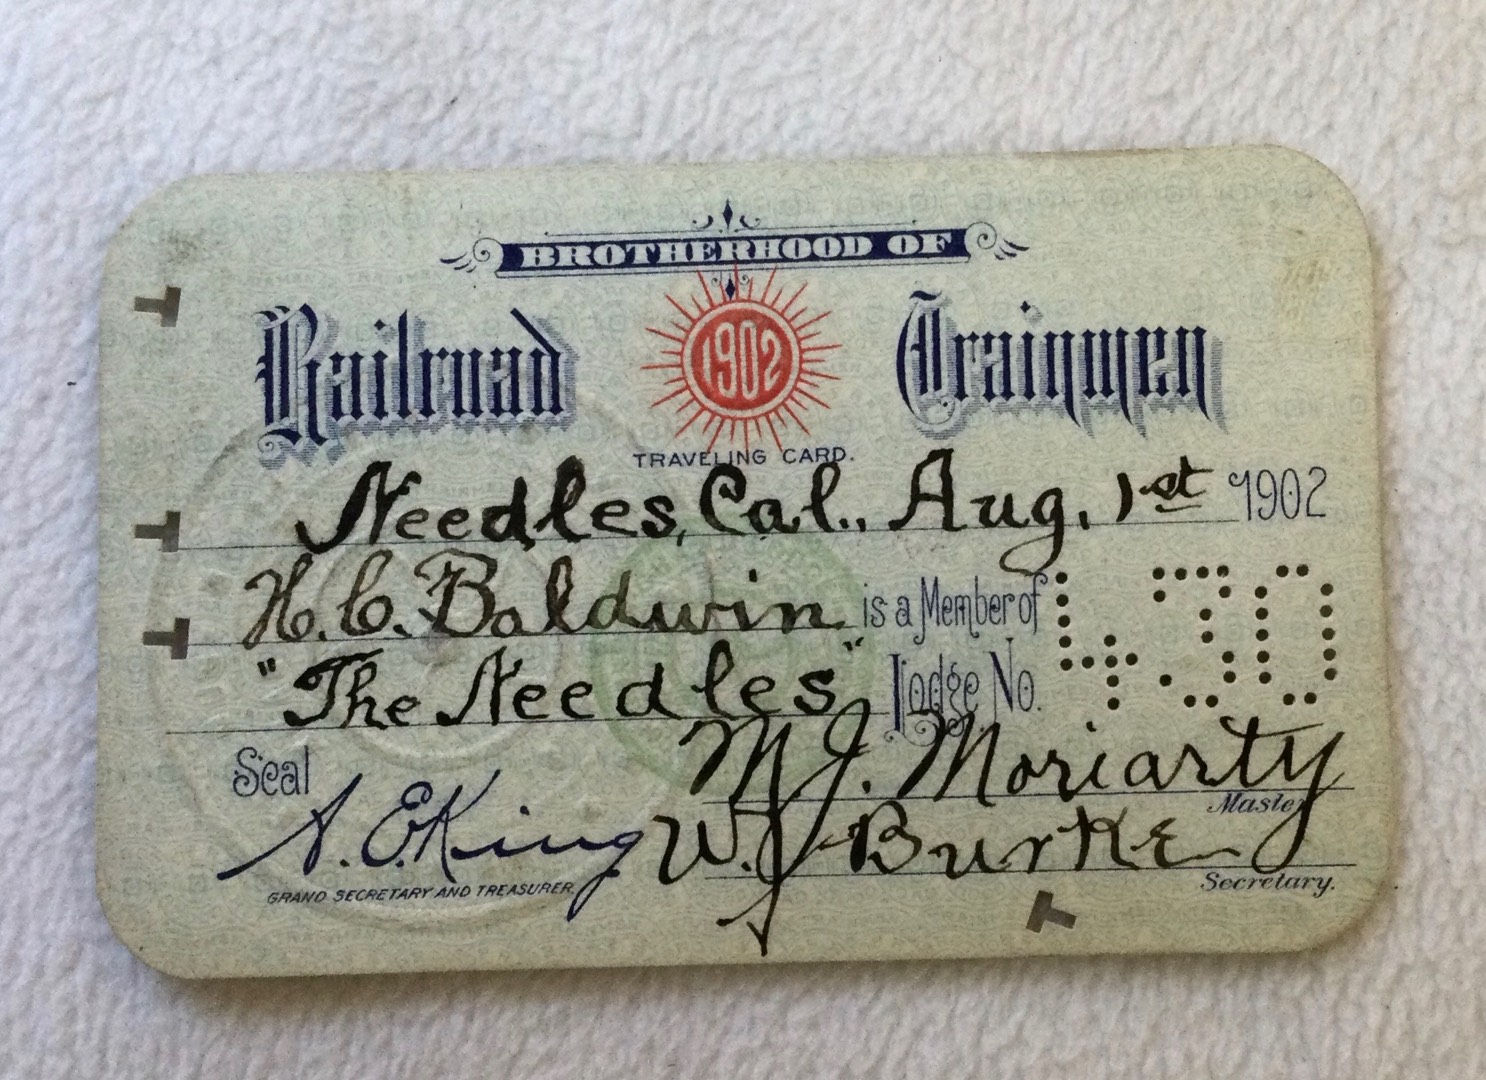 BROTHERHOOD OF
Railroad 1902 Trainmen
TRAVELING CARD.
Needles, Cal., Aug. 1st 1902
H. C. Baldwin is a Member of
"The Needles" Lodge No. 430
Seal M. J. Moriarty
Master
A. E. King W. J. Burke
GRAND SECRETARY AND TREASURER. Secretary.